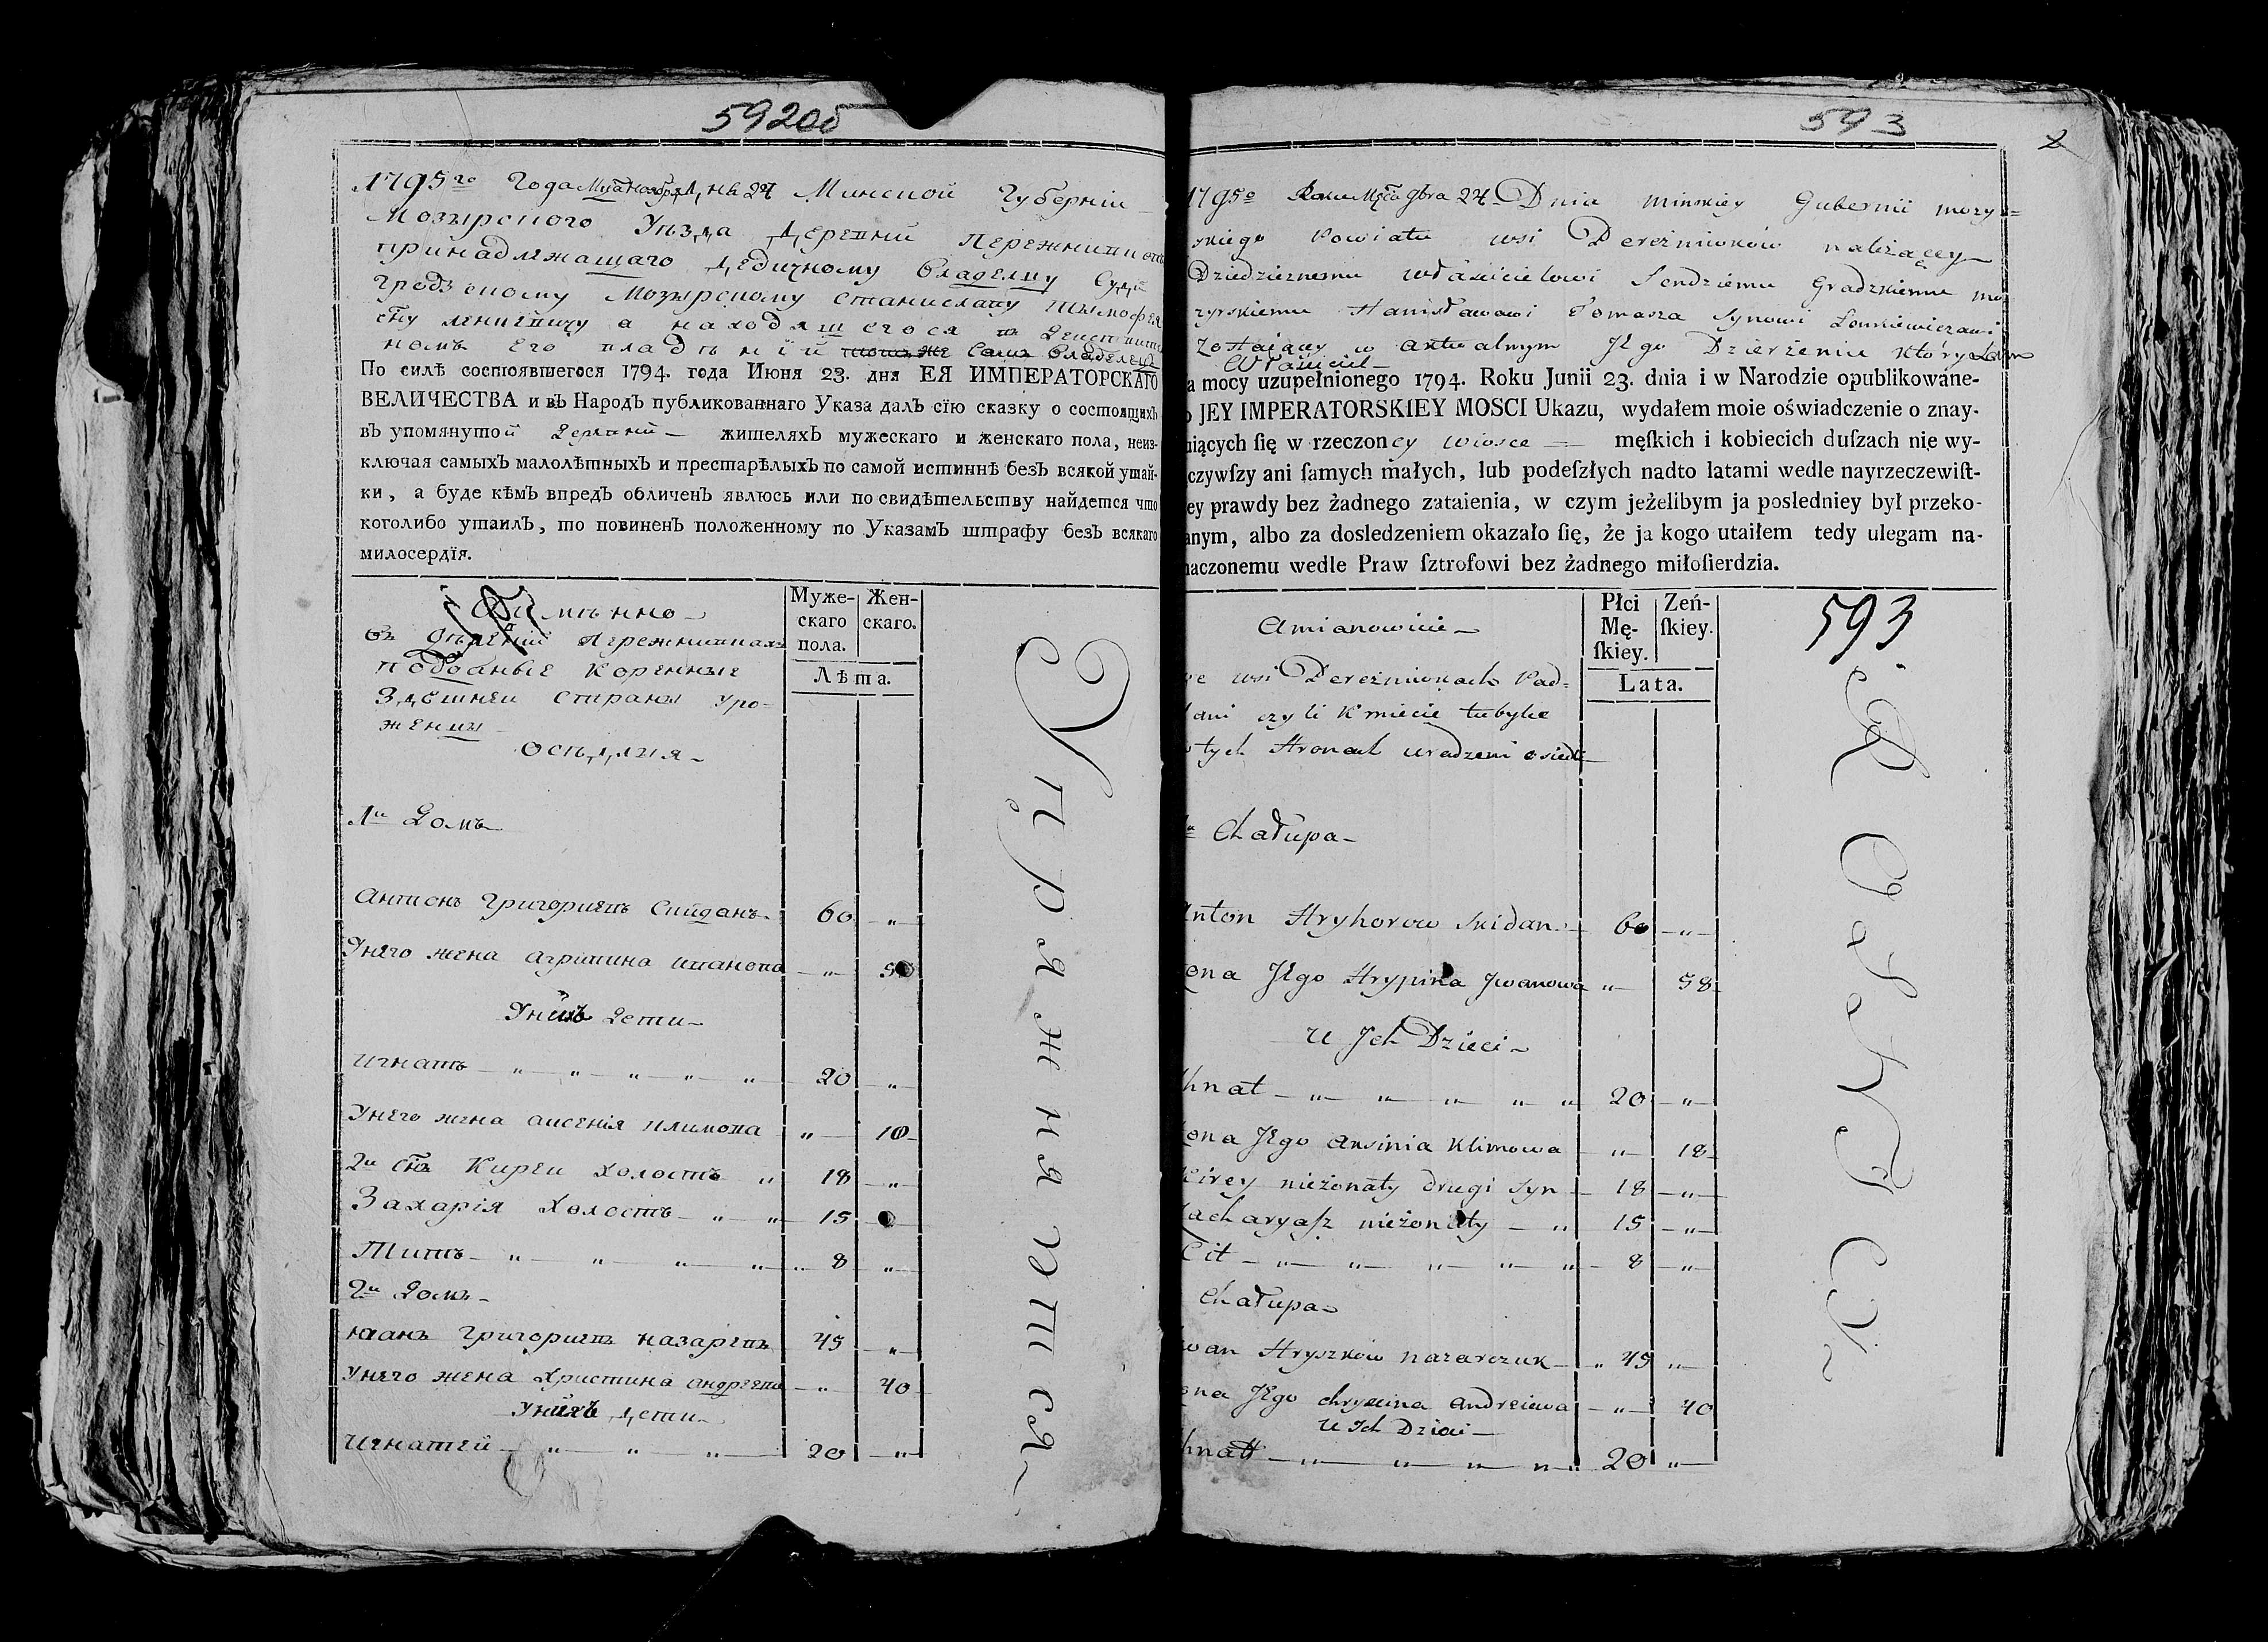 592об
1795го Года Мца Ноября Дня 24 Минской Губернїи
Мозырского Уезда Деревни Дережниккъ
принадлежащаго Дедичному Владелцу Судїи
Гродзскому Мозырскому Станиславу
сну а находящегося в Действител
номъ Его владѣнїи самъ владелецъ
По силѣ состоявшегося 1794. года Июня 23. дня ЕЯ ИМПЕРАТОРСКАГО
ВЕЛИЧЕСТВА и въ Народъ публикованнаго Указа далъ сїю сказку о состоящихъ
въ упомянутой Деревни жителяхъ мужескаго и женскаго пола, неиз-
ключая самыхъ малолѣтныхъ и престарѣлыхъ по самой истиннѣ безъ всякой утай-
ки, а буде кѣмъ впредъ обличенъ явлюсь или по свидѣтельству найдется что
коголибо утаилъ, то повиненъ положенному по Указамъ штрафу безъ всякаго
милосердїя.
Имянно
Въ Деревни
подданые коренные
Здешней Страны уро-
женцы
Оседлыя
Муже-
скаго
пола.
Жен-
скаго.
Лѣта.
1й Домъ
Антонъ Григориевъ Скиданъ 60 "
Унего жена Агрипина Иванова " 58
Унихъ Дети
Игнатъ " " " " " 20 "
Унего жена Аксенїя Климова " 18
2й снъ Кирей Холостъ " 18 "
Захарїя Холостъ " " 15
Титъ " " " " 8 "
2й Домъ
Иванъ Григориевъ Назаревъ 45 "
Унего жена Христина Андреева " 40
Унихъ Дети
Игнатей " " " 20 "
Упряжняется
593
1795o Roku Mca 9bra 24 Dnia Minskiey Gubernii mozy=
skiego Powiatu wsi Dereżnikow należącey
Dziedzicznemu właścicielowi Sendziemu Gradzkiemu mo
zyrskiemu Stanisławowi Tomasza Synowi Lenkiewiczowi
zostaiącey w aktualnym Jego Dzierżeniu który sam
Właściciel
a mocy uzupełnionego 1794. Roku Junii 23. dnia i w Narodzie opublikowane-
o JEY IMPERATORSKIEY MOSCI Ukazu, wydałem moie oświadczenie o znay-
uiących ſię w rzeczoney wiosce męſkich i kobiecich duſzach nie wy-
czywſzy ani ſamych małych, lub podeſzłych nadto latami wedle nayrzeczewiſt-
ey prawdy bez żadnego zataienia, w czym jeżelibym ja posledniey był przeko-
anym, albo za dosledzeniem okazało ſię, że ja kogo utaiłem tedy ulegam na-
naczonemu wedle Praw ſztrofowi bez żadnego miłoſierdzia.
Amianowicie
we wsi Dereżnikach Pod=
dani czyli Kmiecie tubylce
w tych Stronach urodzeni osiedli
Płci
Mę-
ſkiey.
Zeń-
ſkiey.
Lata.
593
Chałupa
Anton Hryhorow Skidan 60 "
ona Jego Hrypina Jwanowa " 58
U Jch Dzieci
hnat " " " " " 20 "
ona Jego Aksinia Klimowa " 18
Kirey nieżonaty drugi Syn 18 "
Zacharyaſz nieżonaty " 15 "
Tit " " " " " 8 "
Chałupa
Jwan Hryszkow Nazarczuk " 45 "
ona Jego Chryscina Andreiewa " 40
U Jch Dzieci
hnatt " " " " " 20 "